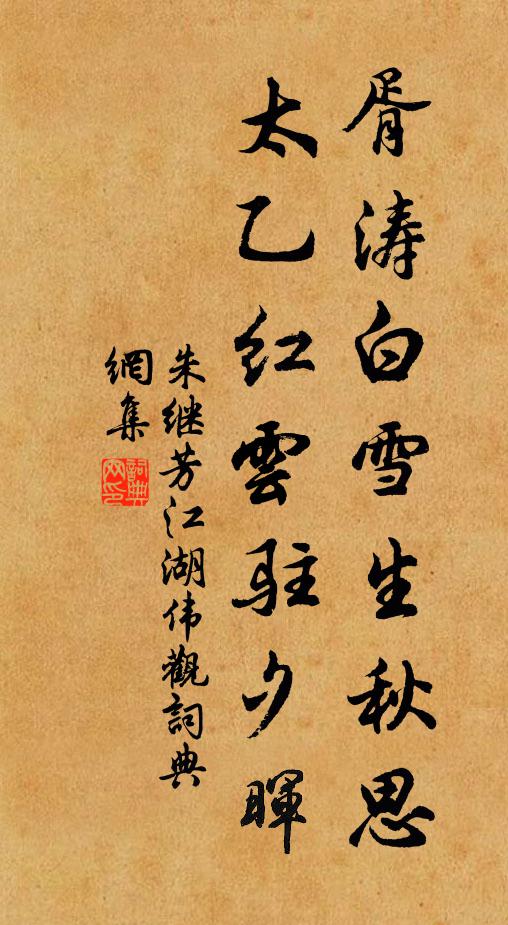 胥涛白雪生秋思
太乙红雲驻夕暉
朱继芳江湖伟觀詞典
網集
詞典
网印